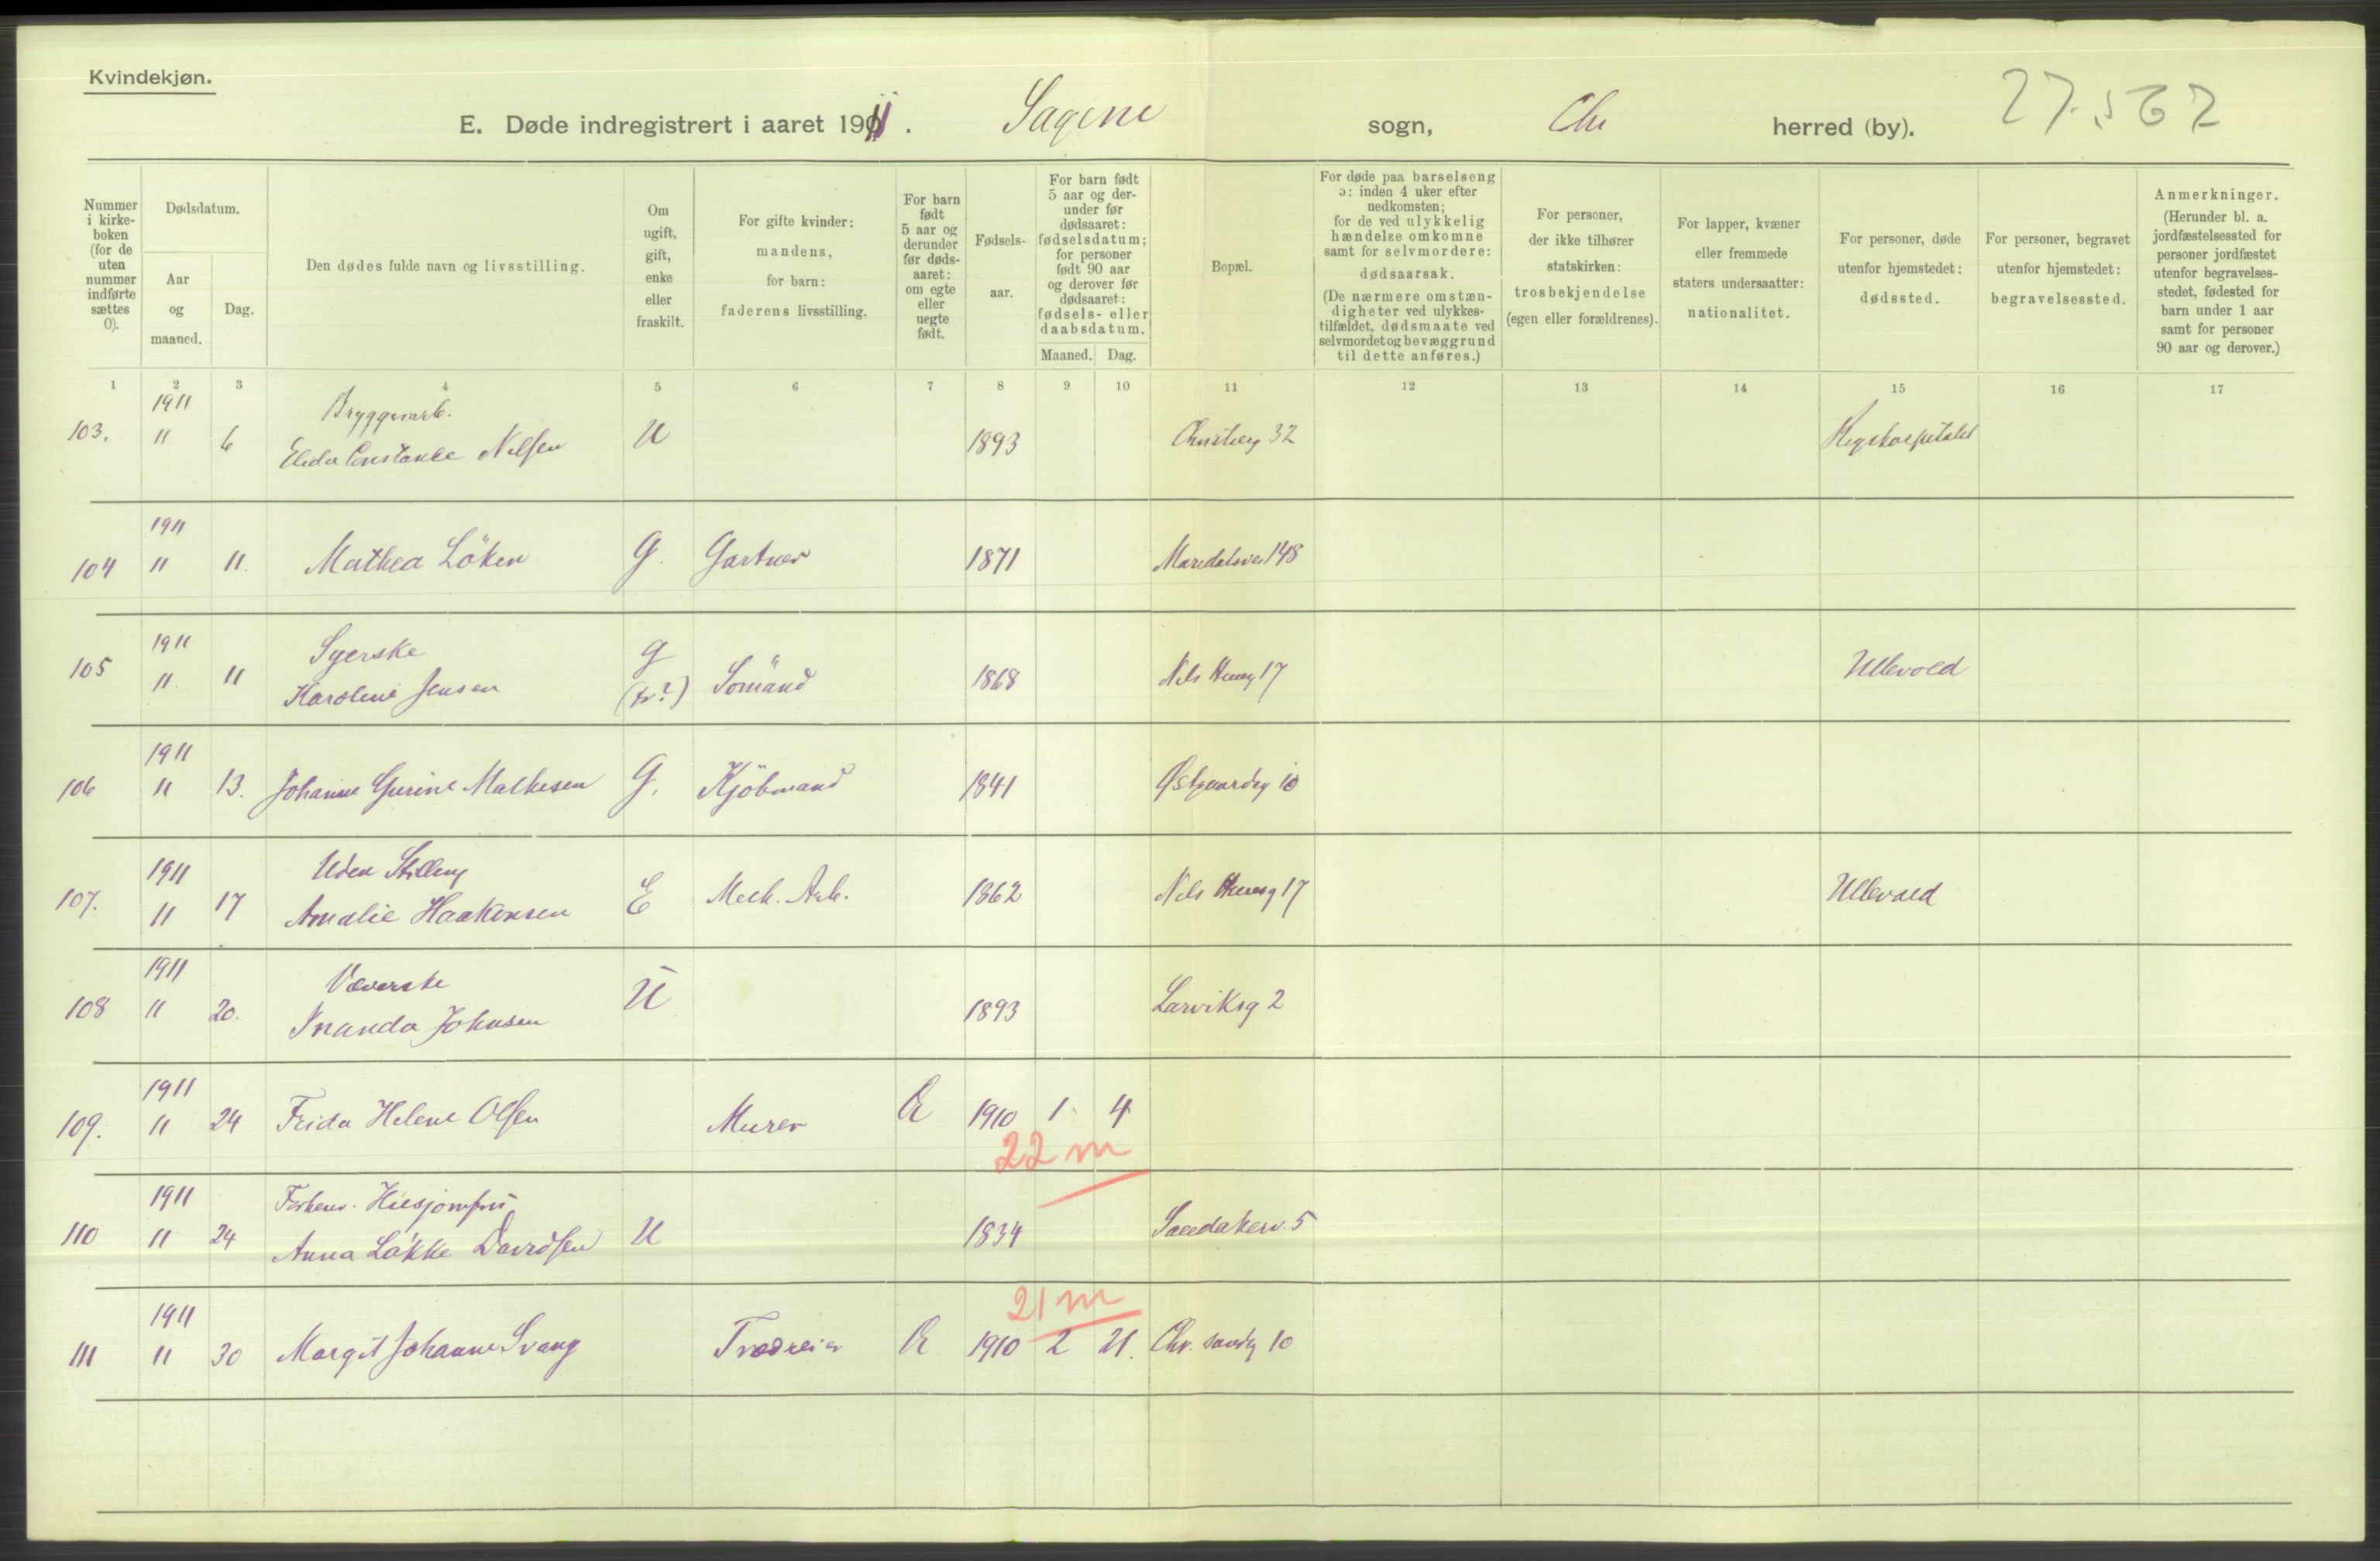 Kvindekjøn.
E. Døde indregistrert i aaret 1911. Sagene sogn, Chr herred (by). 27.562
Nummer i kirke-boken (for de uten nummer indførte sættes 0).
Dødsdatum.
Aar og maaned.
Dag.
Den dødes fulde navn og livsstilling.
Om ugift, gift, enke eller fraskilt.
For gifte kvinder: mandens, for barn: faderens livsstilling.
For barn født 5 aar og derunder før døds-aaret: om egte eller uegte født.
Fødsels-aar.
For barn født 5 aar og der-under før dødsaaret: fødselsdatum; for personer født 90 aar og derover før dødsaaret: fødsels- eller daabsdatum.
Maaned. Dag.
Bopæl.
For døde paa barselseng ɔ: inden 4 uker efter nedkomsten; for de ved ulykkelig hændelse omkomne samt for selvmordere: dødsaarsak.
(De nærmere omstæn-digheter ved ulykkes-tilfældet, dødsmaate ved selvmordet og bevæggrund til dette anføres.)
For personer, der ikke tilhører statskirken: trosbekjendelse (egen eller forældrenes).
For lapper, kvæner eller fremmede staters undersaatter: nationalitet.
For personer, døde utenfor hjemstedet: dødssted.
For personer, begravet utenfor hjemstedet: begravelsessted.
Anmerkninger.
(Herunder bl. a. jordfæstelsessted for personer jordfæstet utenfor begravelses-stedet, fødested for barn under 1 aar samt for personer 90 aar og derover.)
1 2 3 4 5 6 7 8 9 10 11 12 13 14 15 16 17
1911 Bryggeriarb.
103. 11 6 Elida Constance Nilsen U 1893 Christiesg 32 Rigshospitalet
1911
104 11 11. Mathea Löken G. Gartner 1871 Maridalsvei 148
1911 Syerske G
105 11. 11 Karoline Jensen (fr?) Sömand 1868 Nils Huusg 17 Ullevold
1911
106 11 13. Johanne Gurine Mathesen G. Kjöbmand 1841 Østgaardsg 10
1911 Uden Stilling
107. 11 17 Amalie Haakensen E Mech. Arb. 1862 Nils Huusg 17 Ullevold
1911 Væverske
108 11 20. Inanda Johnsen U 1893 Larviksg 2
1911
109. 11 24 Frida Helene Olsen Murer Æ 1910 1 4
22 m
1911 Forhenv. Husjomfru
110 11 24 Anna Lökke Davidsen U 1834 Sandakerv. 5
1911 21 m
111 11 30 Margit Johanne Svang Trædreier Æ 1910 2 21. Chr. sandsg 10